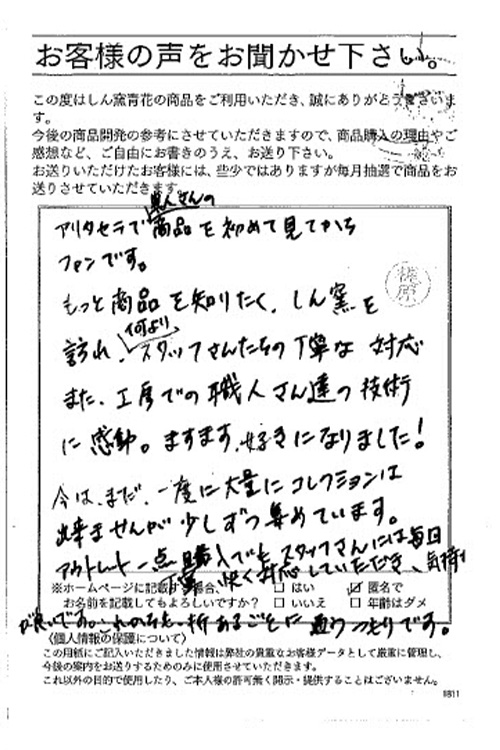 お客様の声をお聞かせ下さい。
この度はしん窯青花の商品をご利用いただき、誠にありがとうございま
す。
今後の商品開発の参考にさせていただきますので、商品購入の理由やご
感想など、ご自由にお書きのうえ、お送り下さい。
お送りいただけたお客様には、些少ではありますが毎月抽選で商品をお
送りさせていただきます。
さんの
アリタセラで商品を初めて見てから
ファンです。
もっと商品を知りたく、しん窯を
何より
訪れ、スタッフさんたちの丁寧な対応
また、工房での職人さん達の技術
に感動。ますます、好きになりました!
今は、まだ、一度に大量にコレクションは
出来ませんが少しずつ集めています。
アウトレット一点購入でもスタッフさんには毎回
丁寧、快く対応していただき、気持ち
※ホームページに記載する場合、 □ はい ☑ 匿名で
お名前を記載してもよろしいですか? □ いいえ □ 年齢はダメ
が良いです。これからも折あるごとに通うつもりです。
〈個人情報の保護について〉
この用紙にご記入いただきました情報は弊社の貴重なお客様データとして厳重に管理し、
今後の案内をお送りするためのみに使用させていただきます。
これ以外の目的で使用したり、ご本人様の許可無く開示・提供することはございません。